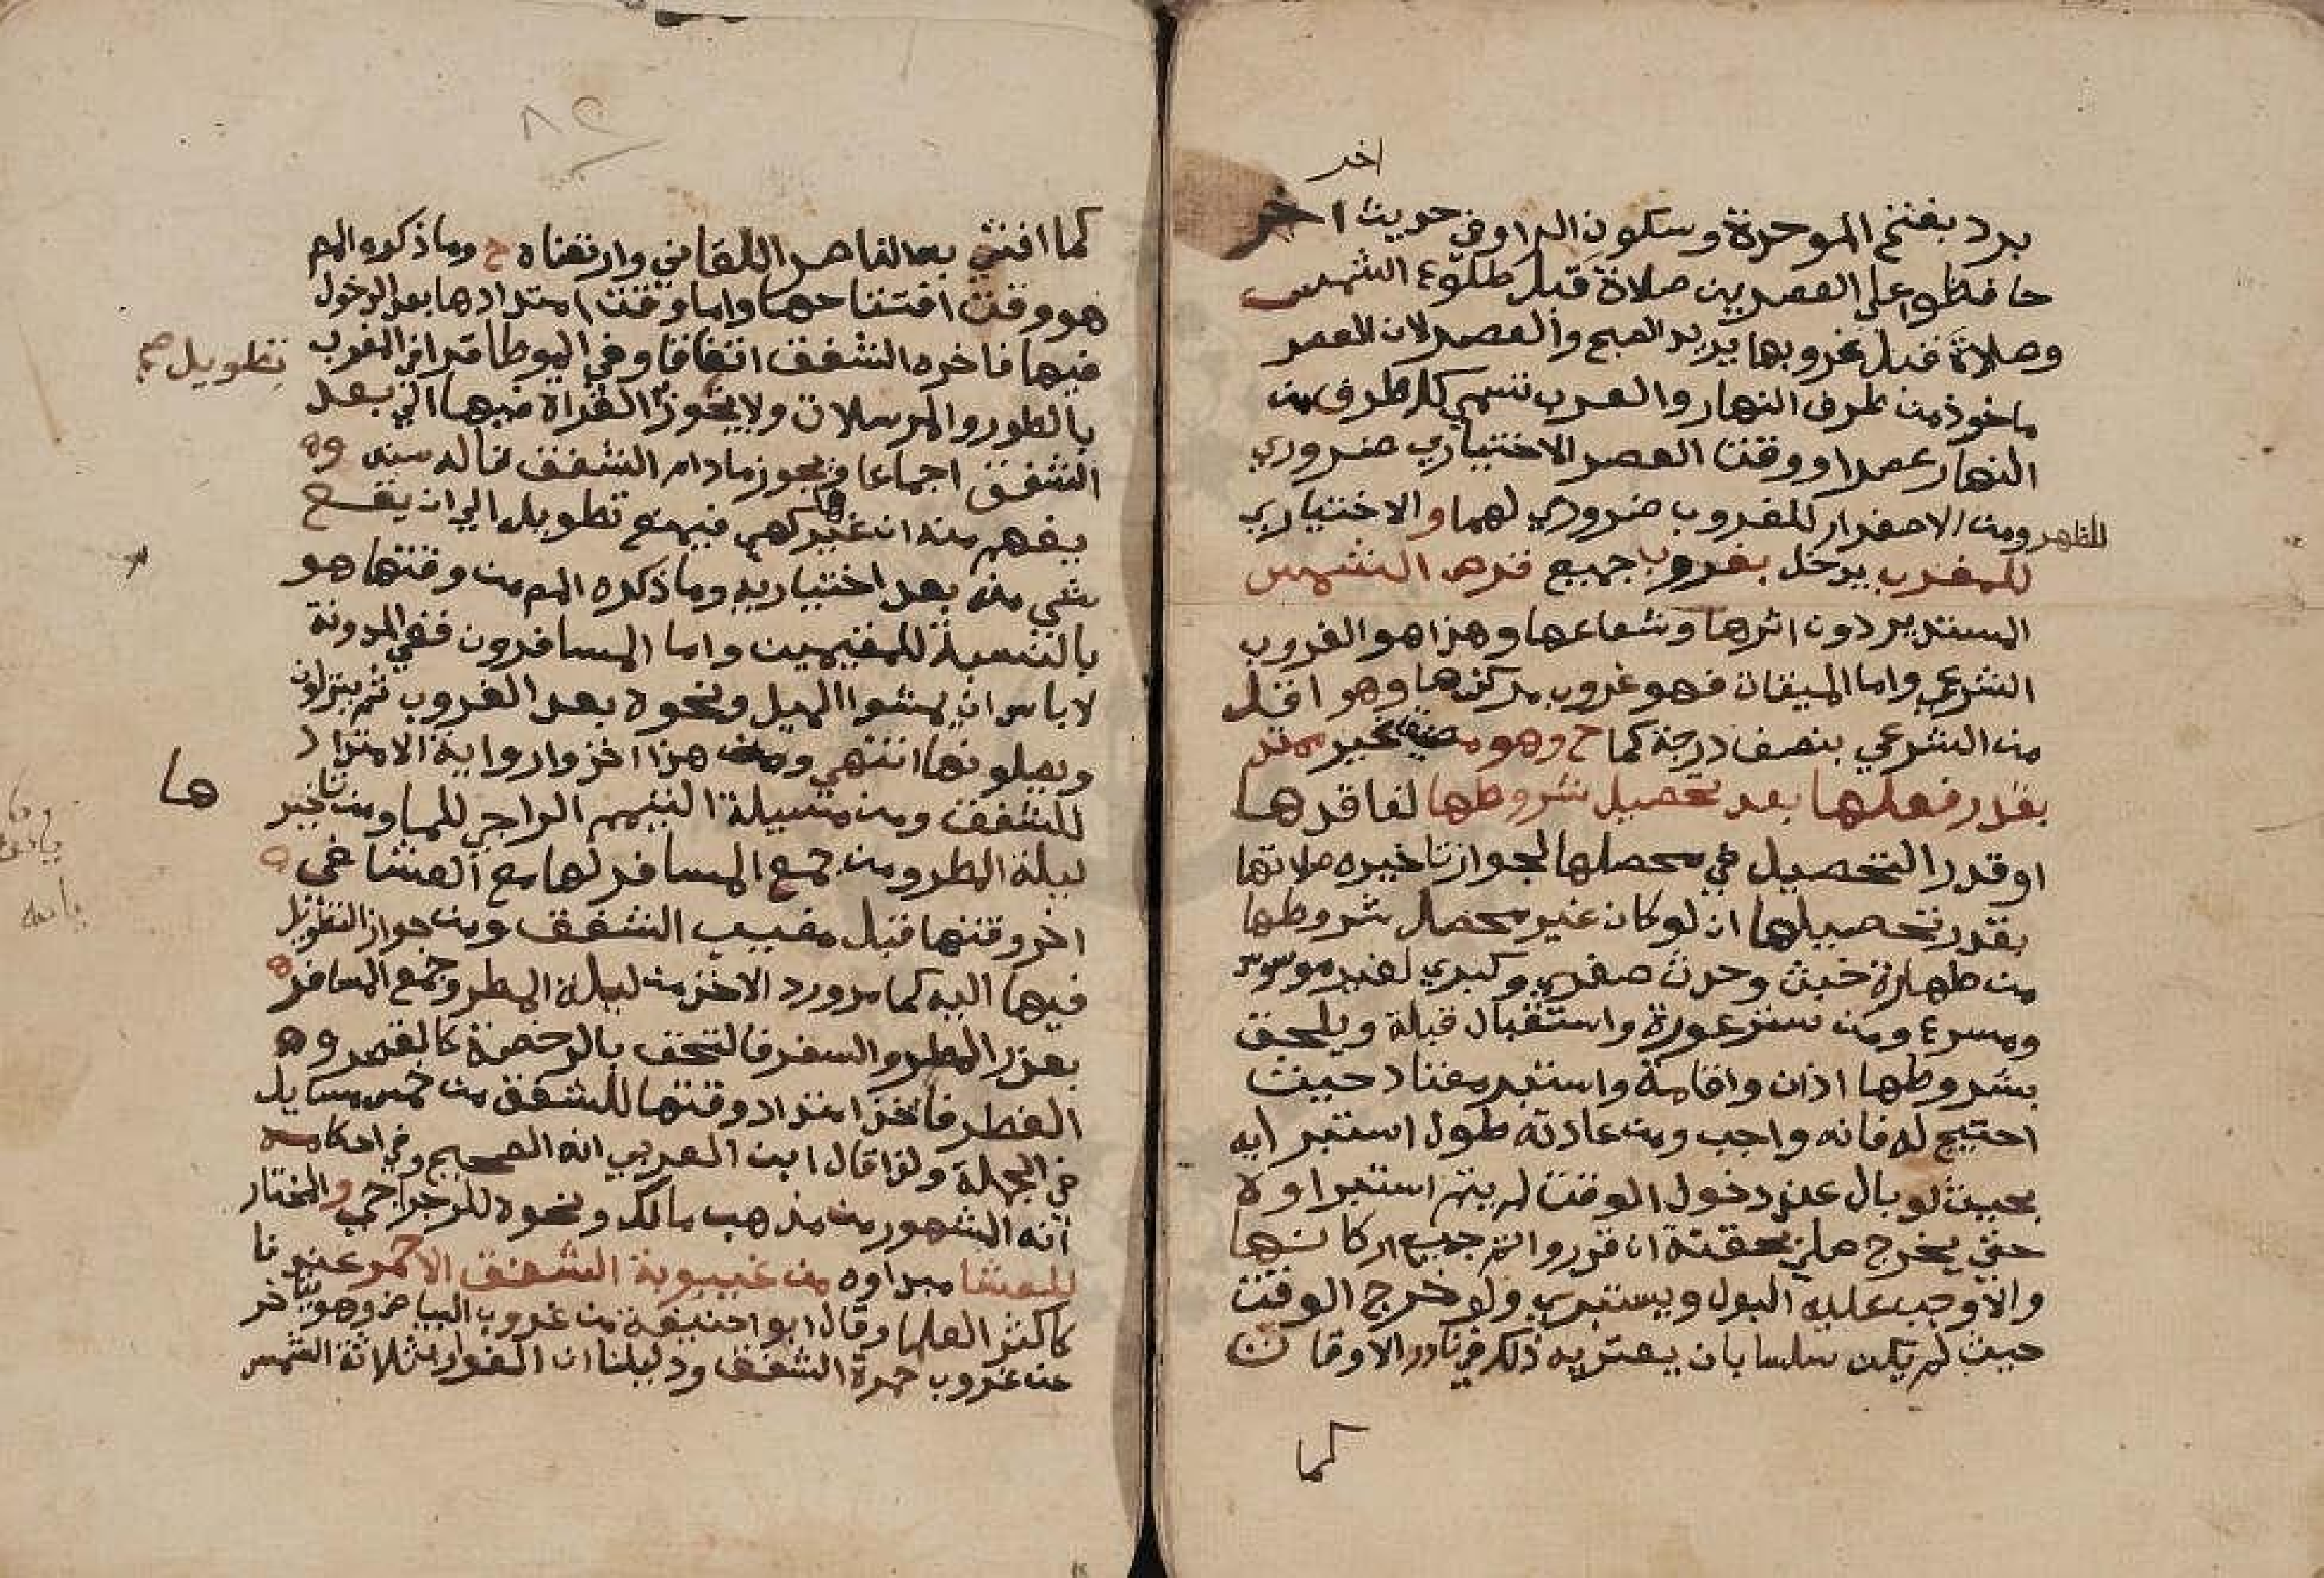 اخر
برد بفتح الموحدة وسكون الراوفي حديث اخر
حافظوا علي العصرين صلاة قبل طلوع الشمس
وصلاة قبل غروبها يريد الصبح والعصر لان العصر
ماخوذ من طرف النهار والعرب تسمي كل طرف من
النهار عصرا ووقت العصر الاختياري ضروري
للظهر ومن الاصفرار للغروب ضروري لهما والاختياري
للمغرب يدخل بغروب جميع قرص الشمس
المستدير دون اثرها وشعاعها وهذا هو الغروب
الشرعي واما الميقات فهو غروب مركزها وهو اقل
من الشرعي بنصف درجة كما ح وهو مضيق غير ممتد
بقدر فعلها بعد تحصيل شروطها لفاقدها
او قدر التحصيل في محصلها لجواز تاخيره صلاتها
بقدر تحصيلها ان لو كان غير محصل شروطها
من طهارة خبث وحدث صغري وكبري لغير موسوس
ومسرع ومن ستر عورة واستقبال قبلة ويلحق
بشروطها اذان واقامة واستبر معتاد حيث
احتيج له فانه واجب ومن عادته طول استبرايه
بحيث لو بال عند دخول الوقت لم يتم استبراوه
حتي يخرج صلي بحقنة ان قدر واتم جميع اركانها
والا وجب عليه البول ويستبري ولو خرج الوقت
حيث لم يكن سلسا بان يعتريه ذلك في نادر الاوقات
كما
كما افتي به الناصر اللقاني وارتضاه ح وما ذكره المص
هو وقت افتتاحها واما وقت امتدادها بعد الدخول
فيها فاخره الشفق اتفاقا وفي الموطا قدرا في المغرب
تطويل صح
بالطور والمرسلات ولا يجوز القراة فيها الي بعد
الشفق اجماعا ويجوز مادام الشفق قاله سند وه
يفهم منه ان غيرها كهي فيمنع تطويل الي ان يقع
شي منه بعد اختياريه وما ذكره المص من وقتها هو
بالنسبة للمقيمين واما المسافرون ففي المدونة
لا باس ان يمشوا الميل ونحوه بعد الغروب ثم ينزلون
ويصلونها انتهي ومن هذا اخذوا رواية الامتداد
ها
للشفق ومن مسيلة التيمم الراجي للما ومن تاخير
ليلة المطر ومن جمع المسافر لها مع العشا في
اخر وقتها قبل مغيب الشفق ومن جواز التطويل
فيها اليه كما مر ورد الاخذ من ليلة المطر وجمع المسافر
بعذر المطر والسفر فالتحق بالرخصة كالقصر وه
الفطر فاخذ امتداد وقتها للشفق من خمس مسايل
في الجملة ولذا قال ابن العربي انه الصحيح وفي احكامه
انه المشهور من مذهب مالك ونحوه للرجراجي والمختار
للعشا مبداوه من غيبوبة الشفق الاحمر عندنا
كاكثر العلما وقال ابو احنيفة من غروب البياض وهو يتاخر
عن غروب حمرة الشفق ودليلنا ان الغوارب ثلاثة الشمس